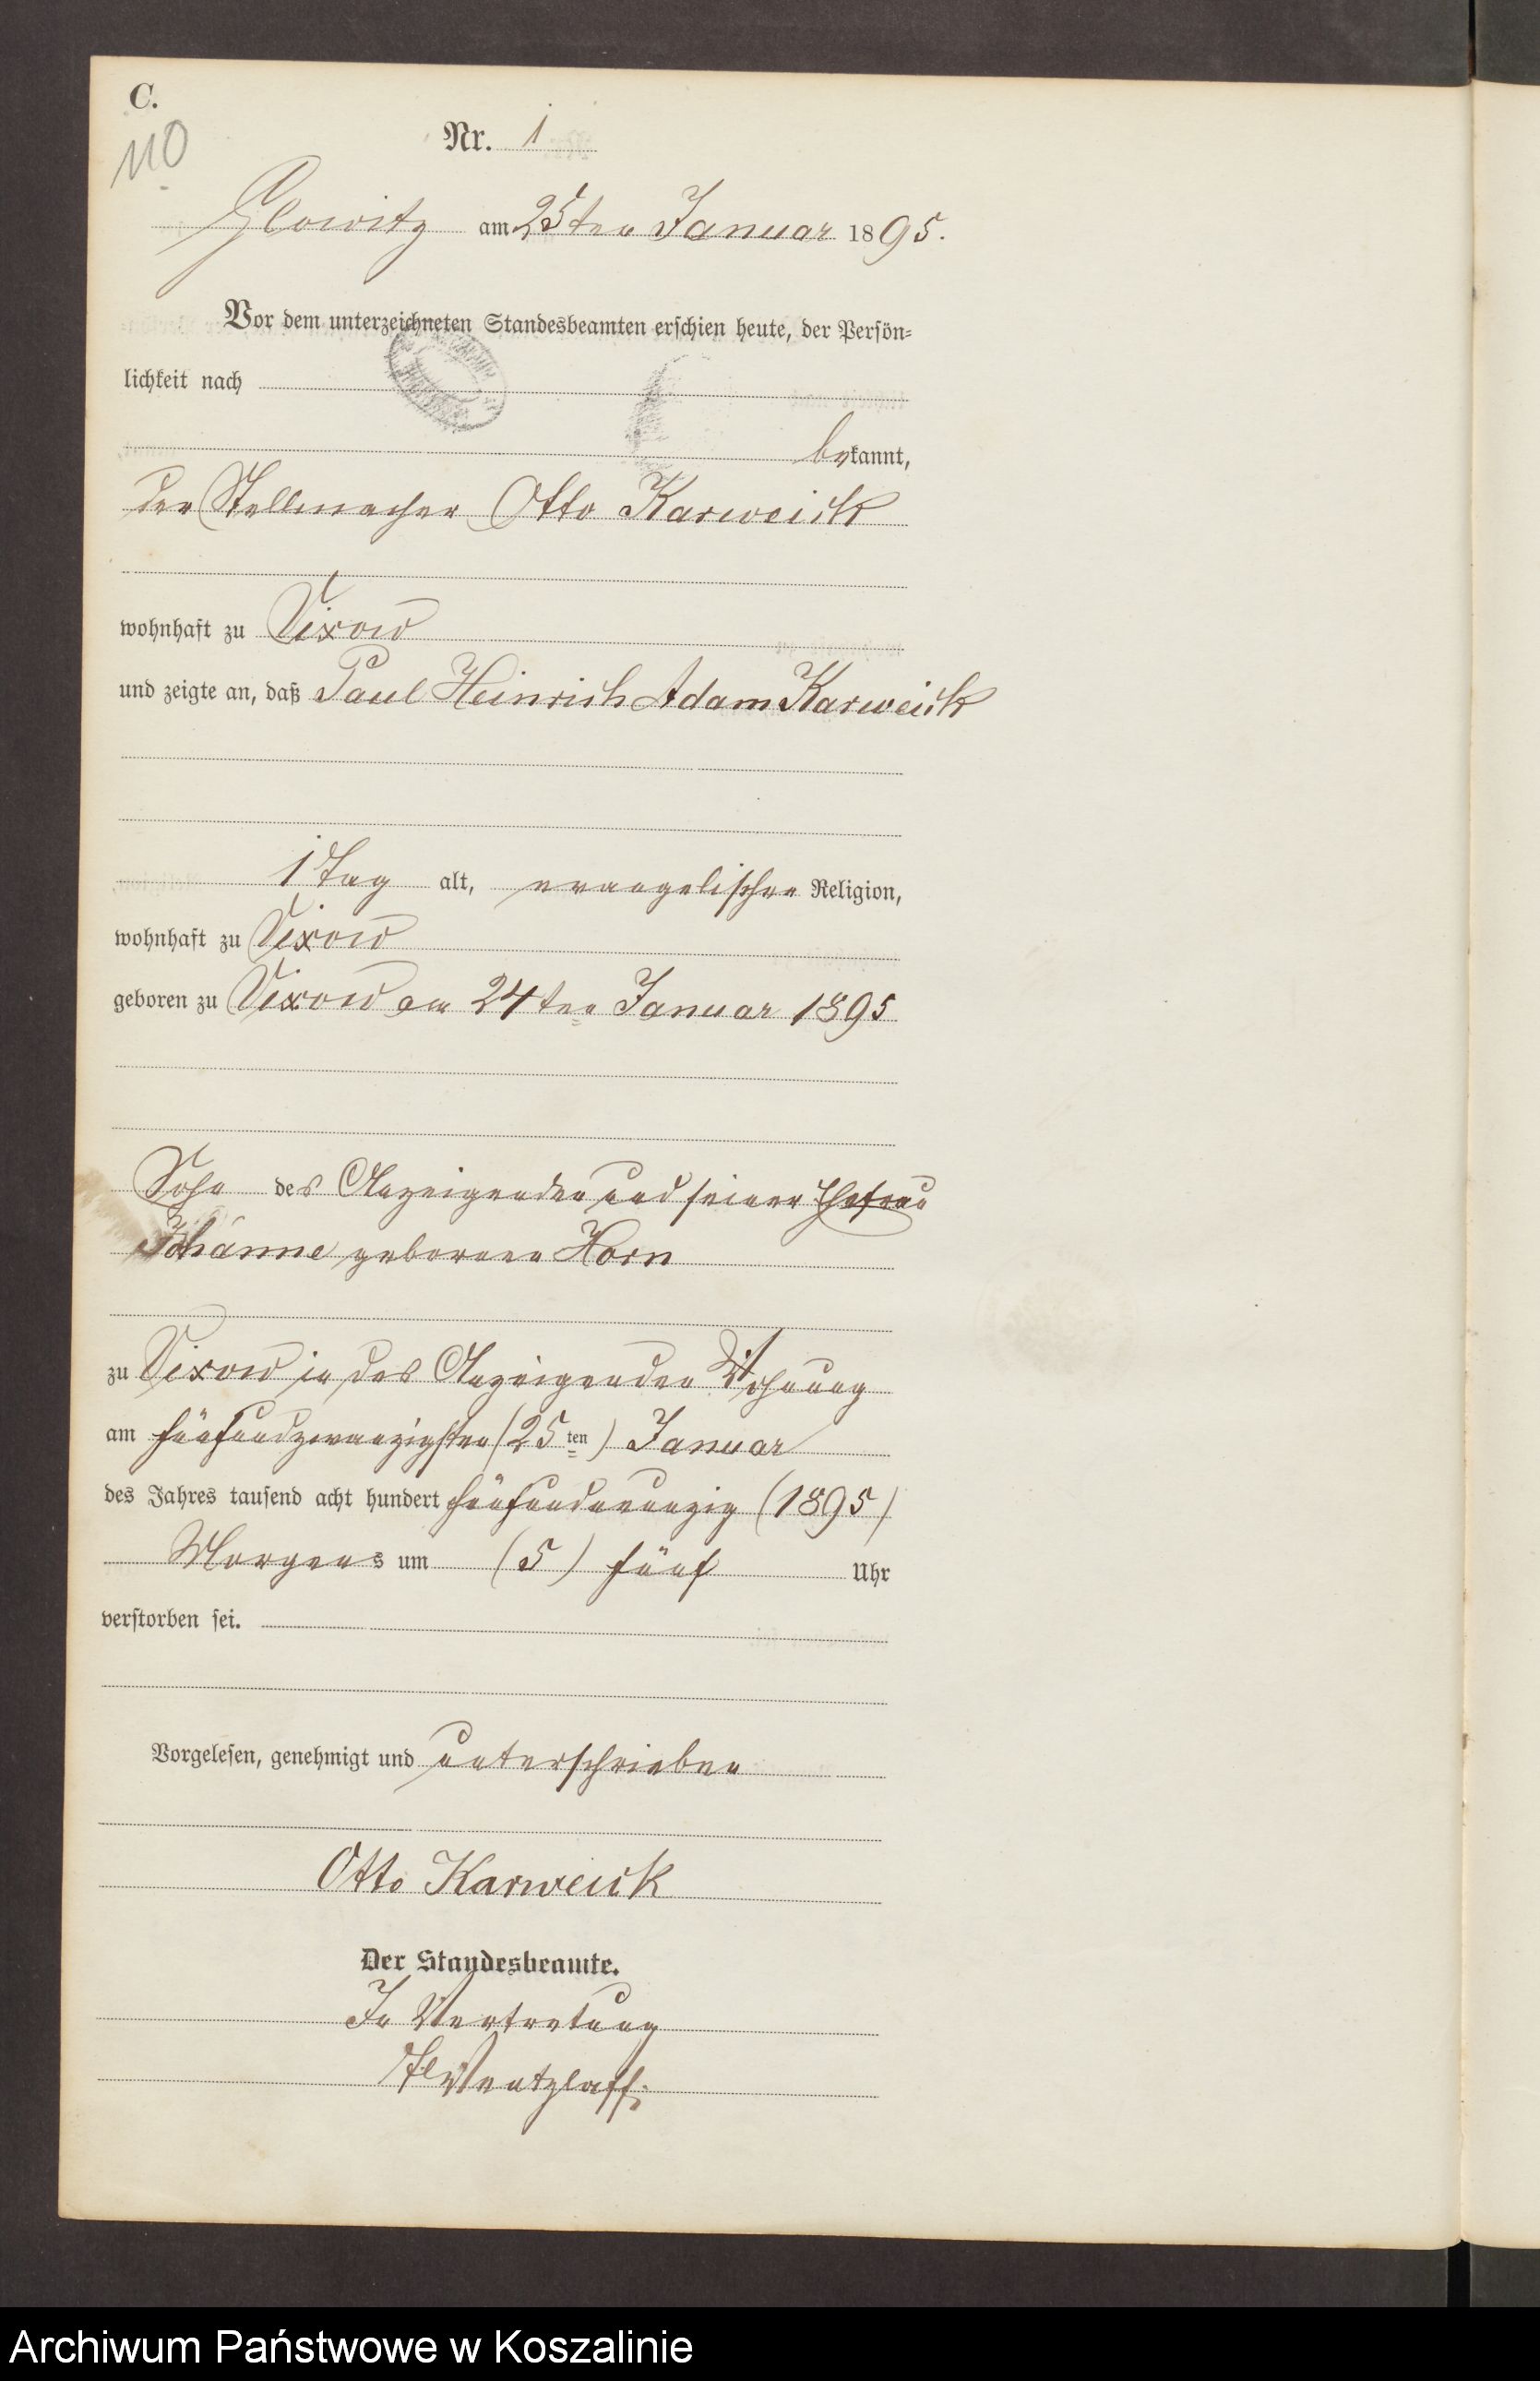 C.
110
Nr. 1
Glowitz am 25ten Januar 1895.
Vor dem unterzeichneten Standesbeamten erschien heute, der Persön-
lichkeit nach
bekannt,
der Stellmacher Otto Karweick
wohnhaft zu Vixow
und zeigte an, daß Paul Heinrich Adam Karweick
1 Tag alt, evangelischer Religion,
wohnhaft zu Vixow
geboren zu Vixow am 24ten Januar 1895
Sohn des Anzeigenden und seiner Ehefrau
Johanne geborenen Horn
zu Vixow in des Anzeigenden Wohnung
am fünfundzwanzigsten (25ten) Januar
des Jahres tausend acht hundert fünfundneunzig (1895)
Morgens um (5) fünf Uhr
verstorben sei.
Vorgelesen, genehmigt und unterschrieben
Otto Karweick
Der Standesbeamte.
In Vertretung
Wentzlaff.
Archiwum Państwowe w Koszalinie